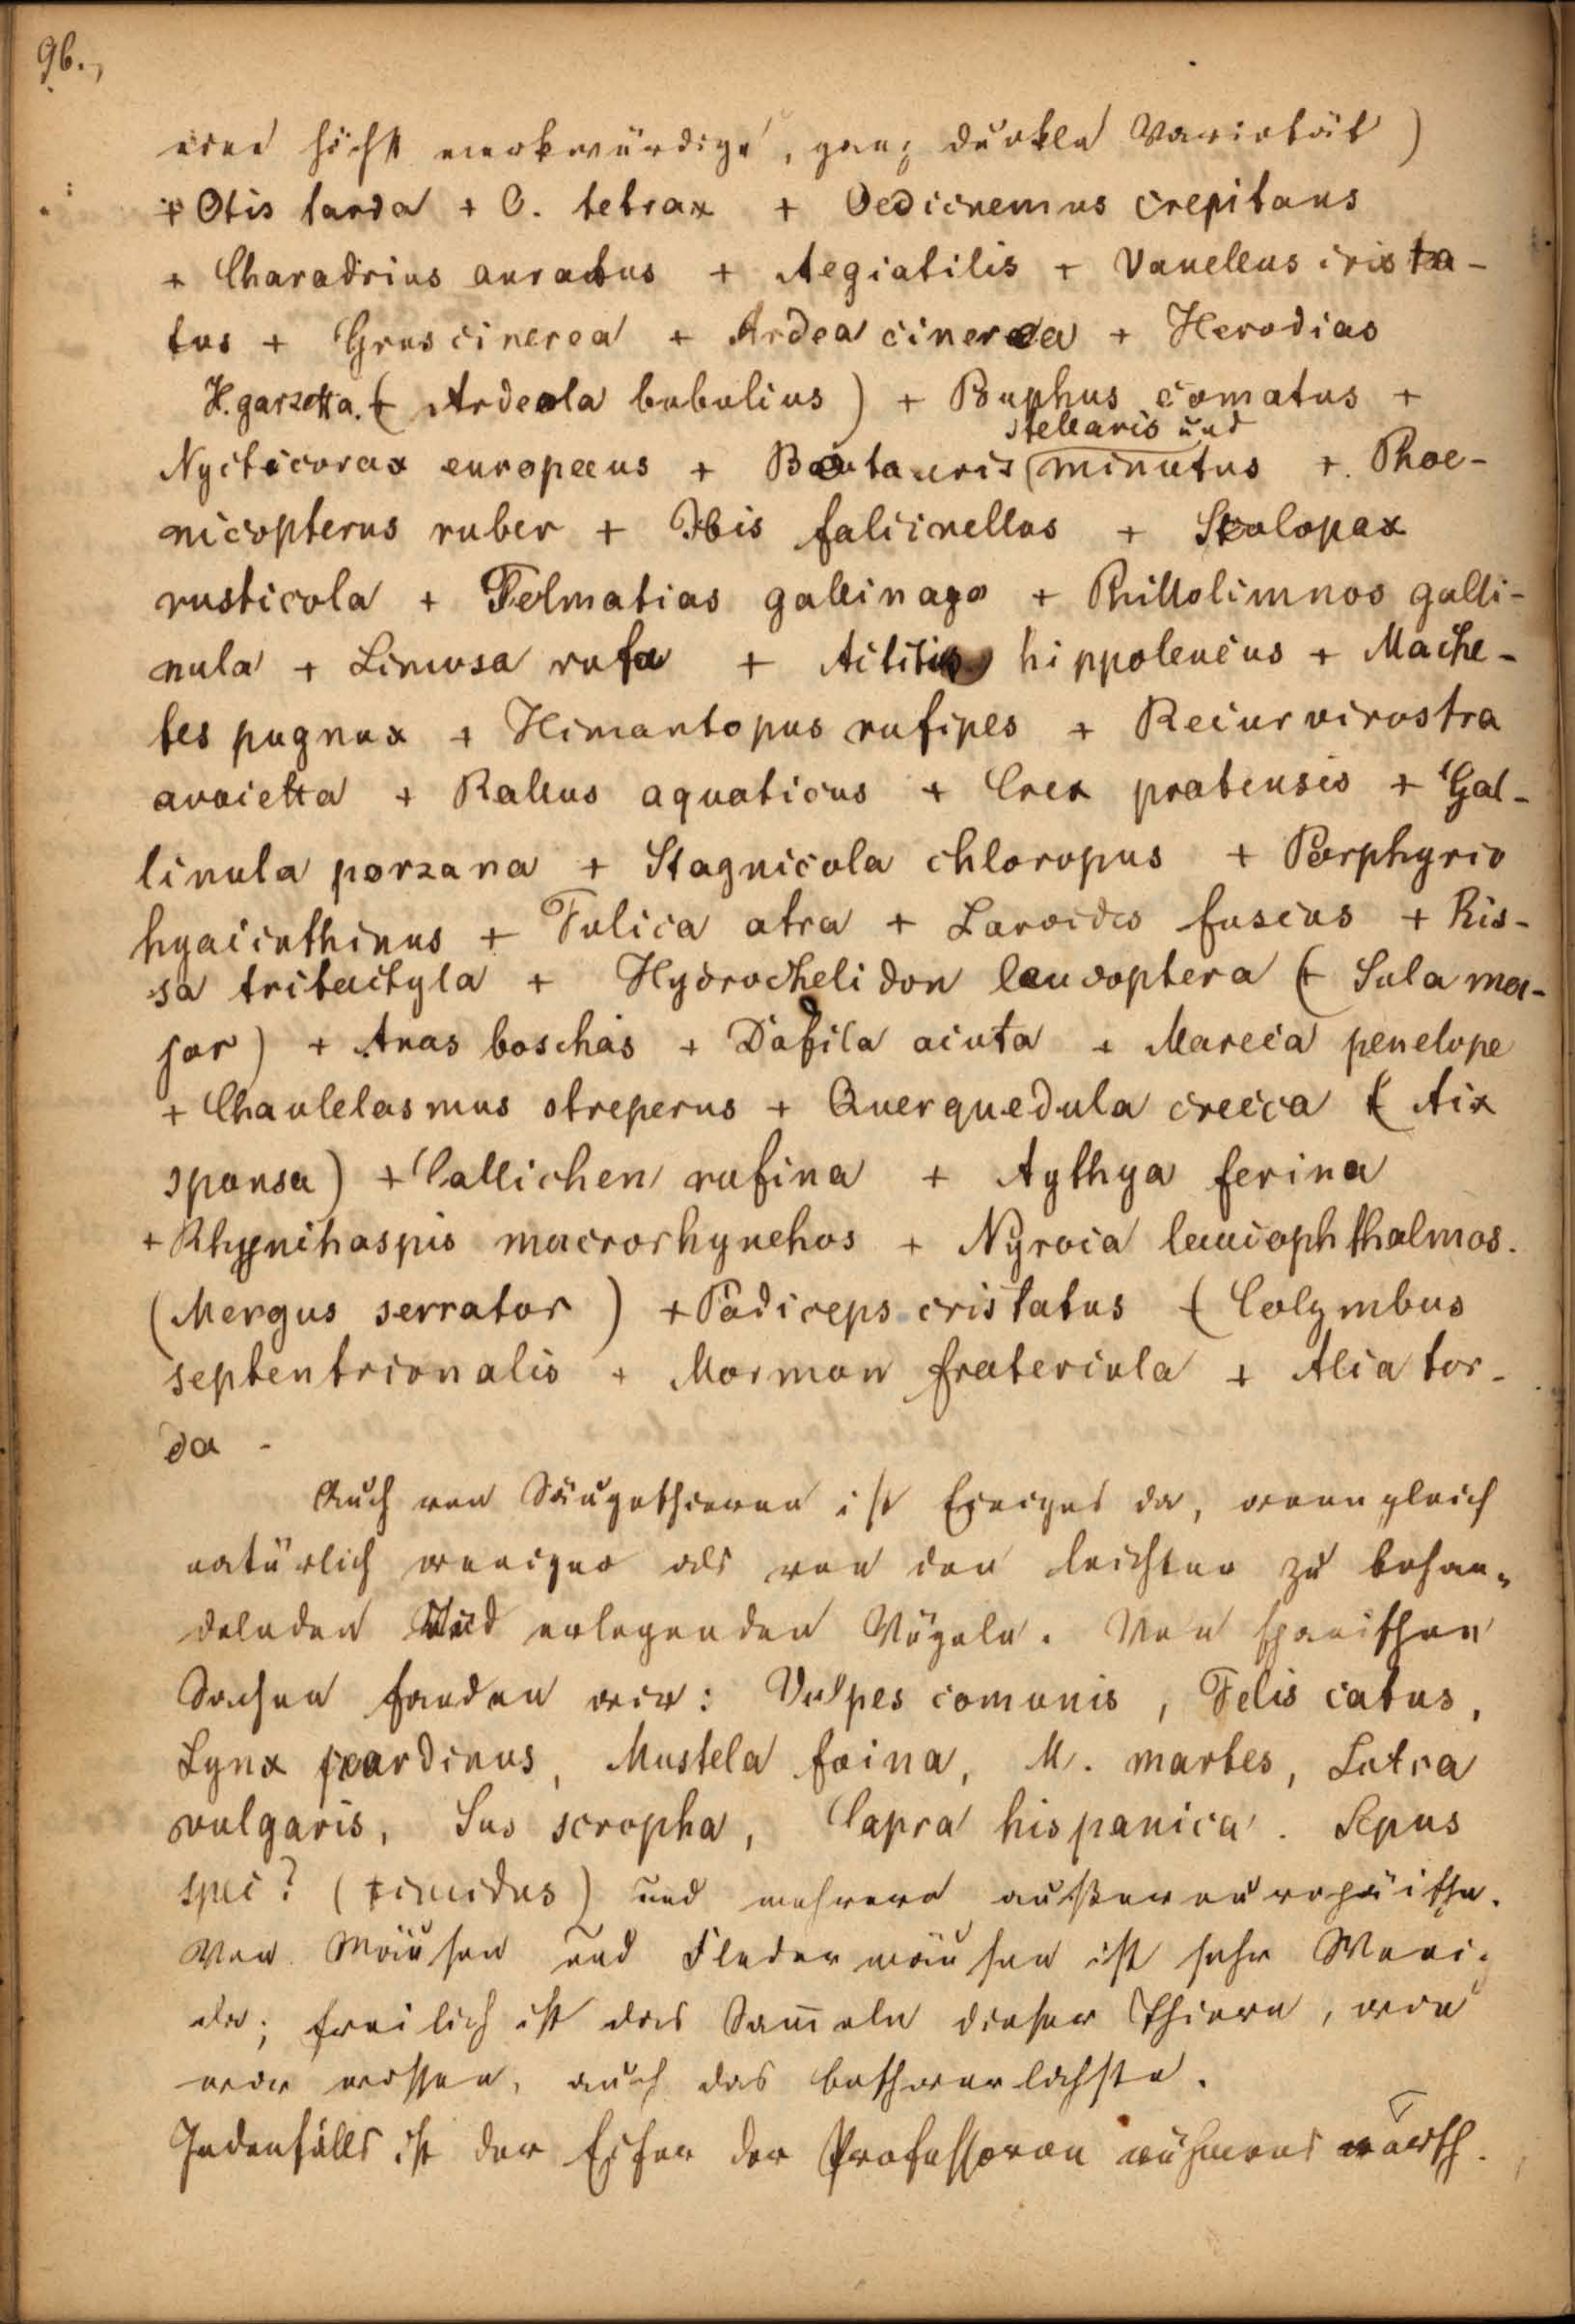 96.,
eine höchst merkwürdige, ganz dunkle Varietät)
+ Otis tarda + O. tetrax + Oedicnemus crepitans
+ Charadrius auratus + Aegialitis + Vanellus crista-
tus + Grus cinerea + Ardea cinerea + Herodias
H. garzetta. (+ Ardeola bubulius) + Buphus comatus +
stellaris und
Nycticorax europaeus + Botauris (minutus +. Phoe-
nicopterus ruber + Ibis falcinellus + Scolopax
rusticola + Telmatias gallinago + Phillolimnos galli-
nula + Limosa rufa + Actitis hippoleucus + Mache-
tes pugnax + Himantopus rufipes + Recurvirostra
avocetta + Rallus aquaticus + Crex pratensis + Gal-
linula porzana + Stagnicola chloropus + Porphyrio
hyacinthinus + Fulica atra + Laroides fuscus + Ris-
sa tritactyla + Hydrochelidon leucoptera (+ Sula ma-
jor) + Anas boschas + Dafila acuta + Mareca penelope
+ Chaulelasmus streperus + Querquedula crecca (+ Aix
sponsa) + Callichen rufina + Aythya ferina
+ Rhynchaspis macrorhynchos + Nyroca leucophthalmos.
(Mergus serrator) + Podiceps cristatus + (Colymbus
septentrionalis + Mormon fratercula + Alca tor-
da -
Auch von Säugethieren ist Einiges da, wenngleich
natürlich weniger als von den leichter zu behan-
delnden und erlegenden Vögeln. Von spanischen
Sachen fanden wir: Vulpes comunis, Felis catus,
Lynx pardinus, Mustela foina, M. martes, Lutra
vulgaris, Sus scropha, Capra hispanica. Lepus
spec? (timidus) und mehrere außereuropäische.
Von Mäusen und Fledermäusen ist sehr Wenig
da; freilich ist das Sam̄eln dieser Thiere, wie
wir wissen, auch das beschwerlichste.
Jedenfalls ist der Eifer der Professoren rühmenswerth.